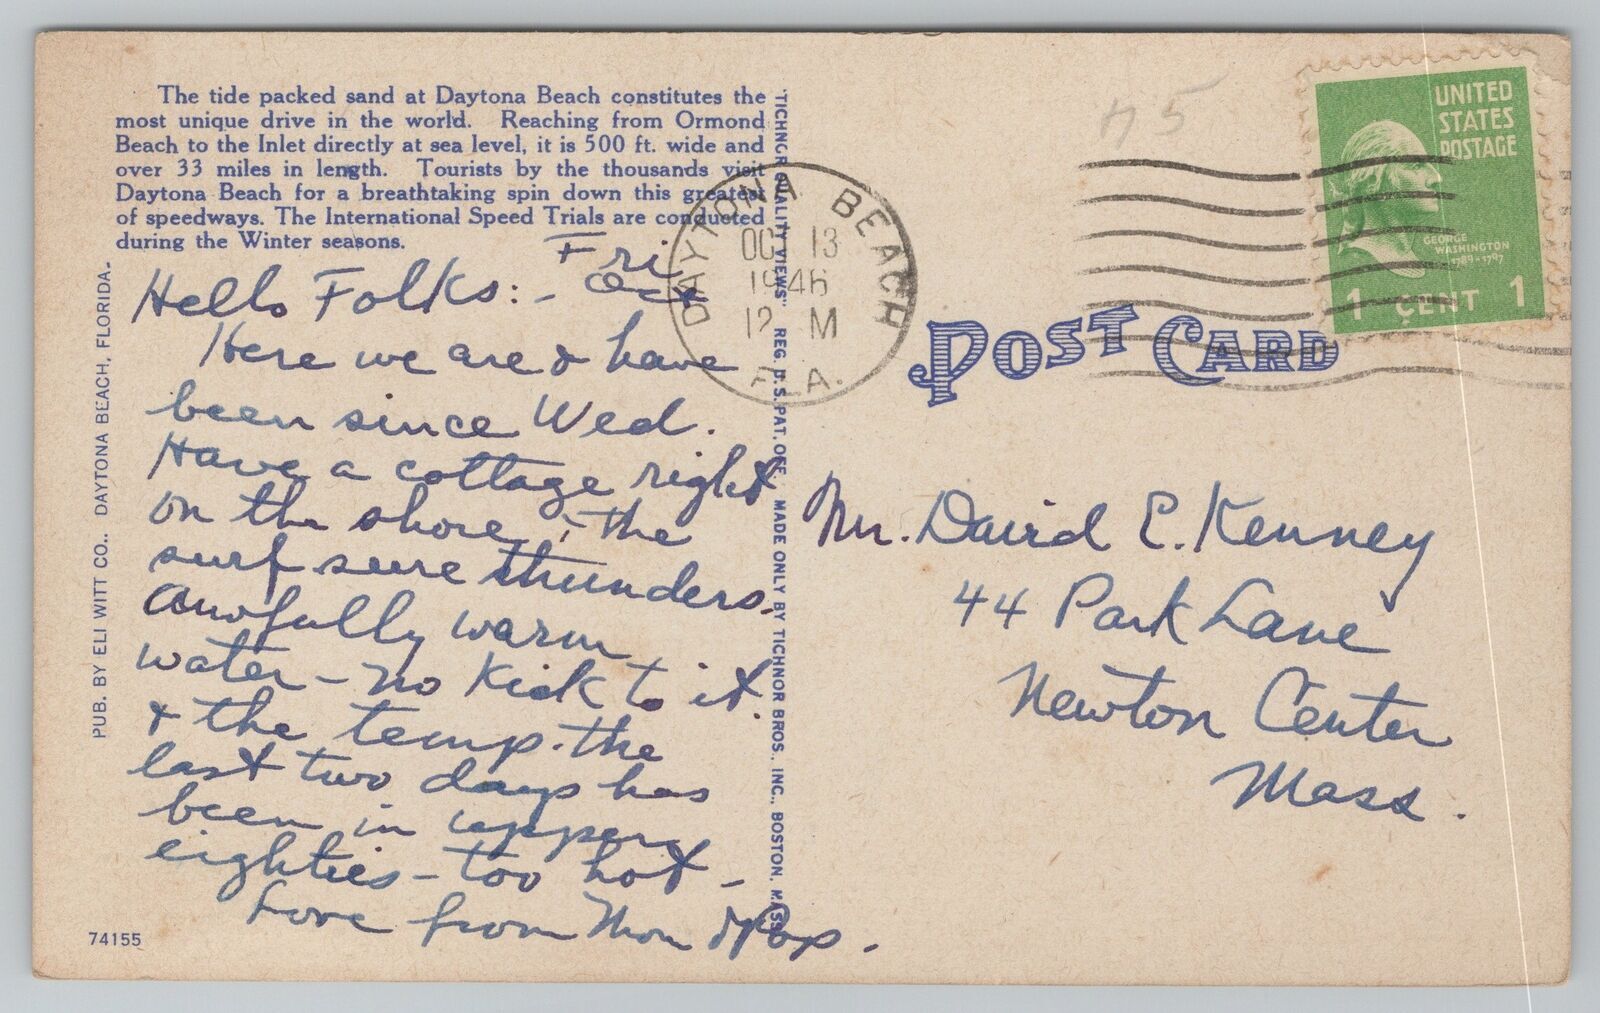 The tide packed sand at Daytona Beach constitutes the
most unique drive in the world. Reaching from Ormond
Beach to the Inlet directly at sea level, it is 500 ft. wide and
over 33 miles in length. Tourists by the thousands visit
Daytona Beach for a breathtaking spin down this greatest
of speedways. The International Speed Trials are conducted
during the Winter seasons.
Fri
Hello Folks:-
Here we are & have
been since Wed.
Have a cottage right
on the shore, & the
surf sure thunders.
Awfully warm
water - no kick to it.
& the temp. the
last two days has
been in upper
eighties - too hot -
Love from Mom & Pop.
74155
PUB. BY ELI WITT CO., DAYTONA BEACH, FLORIDA.
"TICHNOR QUALITY VIEWS" REG. U. S. PAT. OFF. MADE ONLY BY TICHNOR BROS., INC., BOSTON, MASS.
DAYTONA BEACH
OCT 13
1946
12 M
FLA.
POST CARD
UNITED
STATES
POSTAGE
GEORGE
WASHINGTON
1789-1797
1 CENT 1
Mr. David E. Kenney
44 Park Lane
Newton Center
Mass.